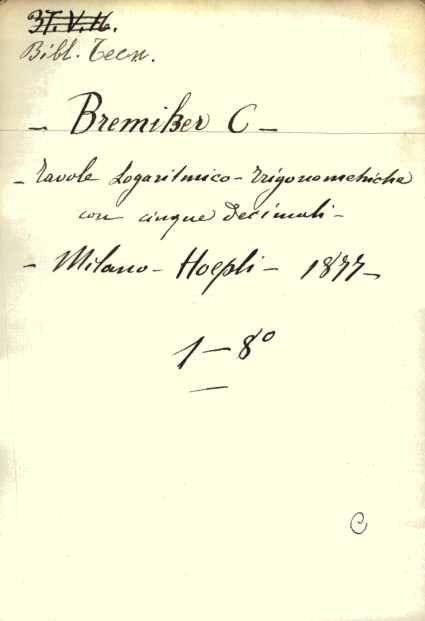 3T.V.16.
Bibl. Tecn.
- Bremiker C -
- Tavole Logaritmico - Trigonometriche
con cinque decimali -
- Milano - Hoepli - 1877 -
1 - 8º
C